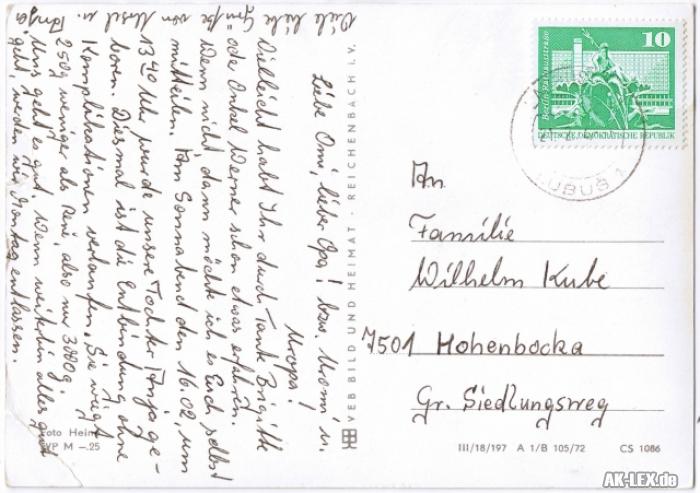 Liebe Omi, lieber Opa! bzw. Uromi u.
Uropa!
Vielleicht habt Ihr durch Tante Brigitte
oder Onkel Werner schon etwas erfahren.
Wenn nicht, dann möchte ich es Euch selbst
mitteilen. Am Sonnabend den 16.02. um
1340 Uhr wurde unsere Tochter Anja ge-
boren. Diesmal ist die Entbindung ohne
Komplikationen verlaufen. Sie wiegt
250g weniger als René, also nur 3000g.
Uns geht es gut. Wenn weiterhin alles gut
geht, werden wir Montag entlassen.
Viele liebe Grüße von Ursel u. Anja
VEB BILD UND HEIMAT · REICHENBACH I. V.
10
Berlin·Rathausstraße
DEUTSCHE DEMOKRATISCHE REPUBLIK
An
Familie
Wilhelm Kube
7501 Hohenbocka
Gr. Siedlungsweg
Foto Hein
EVP M –.25
III/18/197 A 1/B 105/72 CS 1086
AK-LEX.de